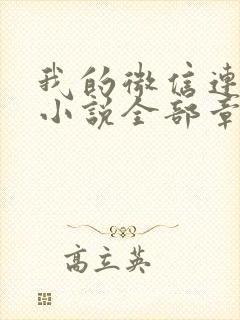 我的微信連
小說全部章
高立英